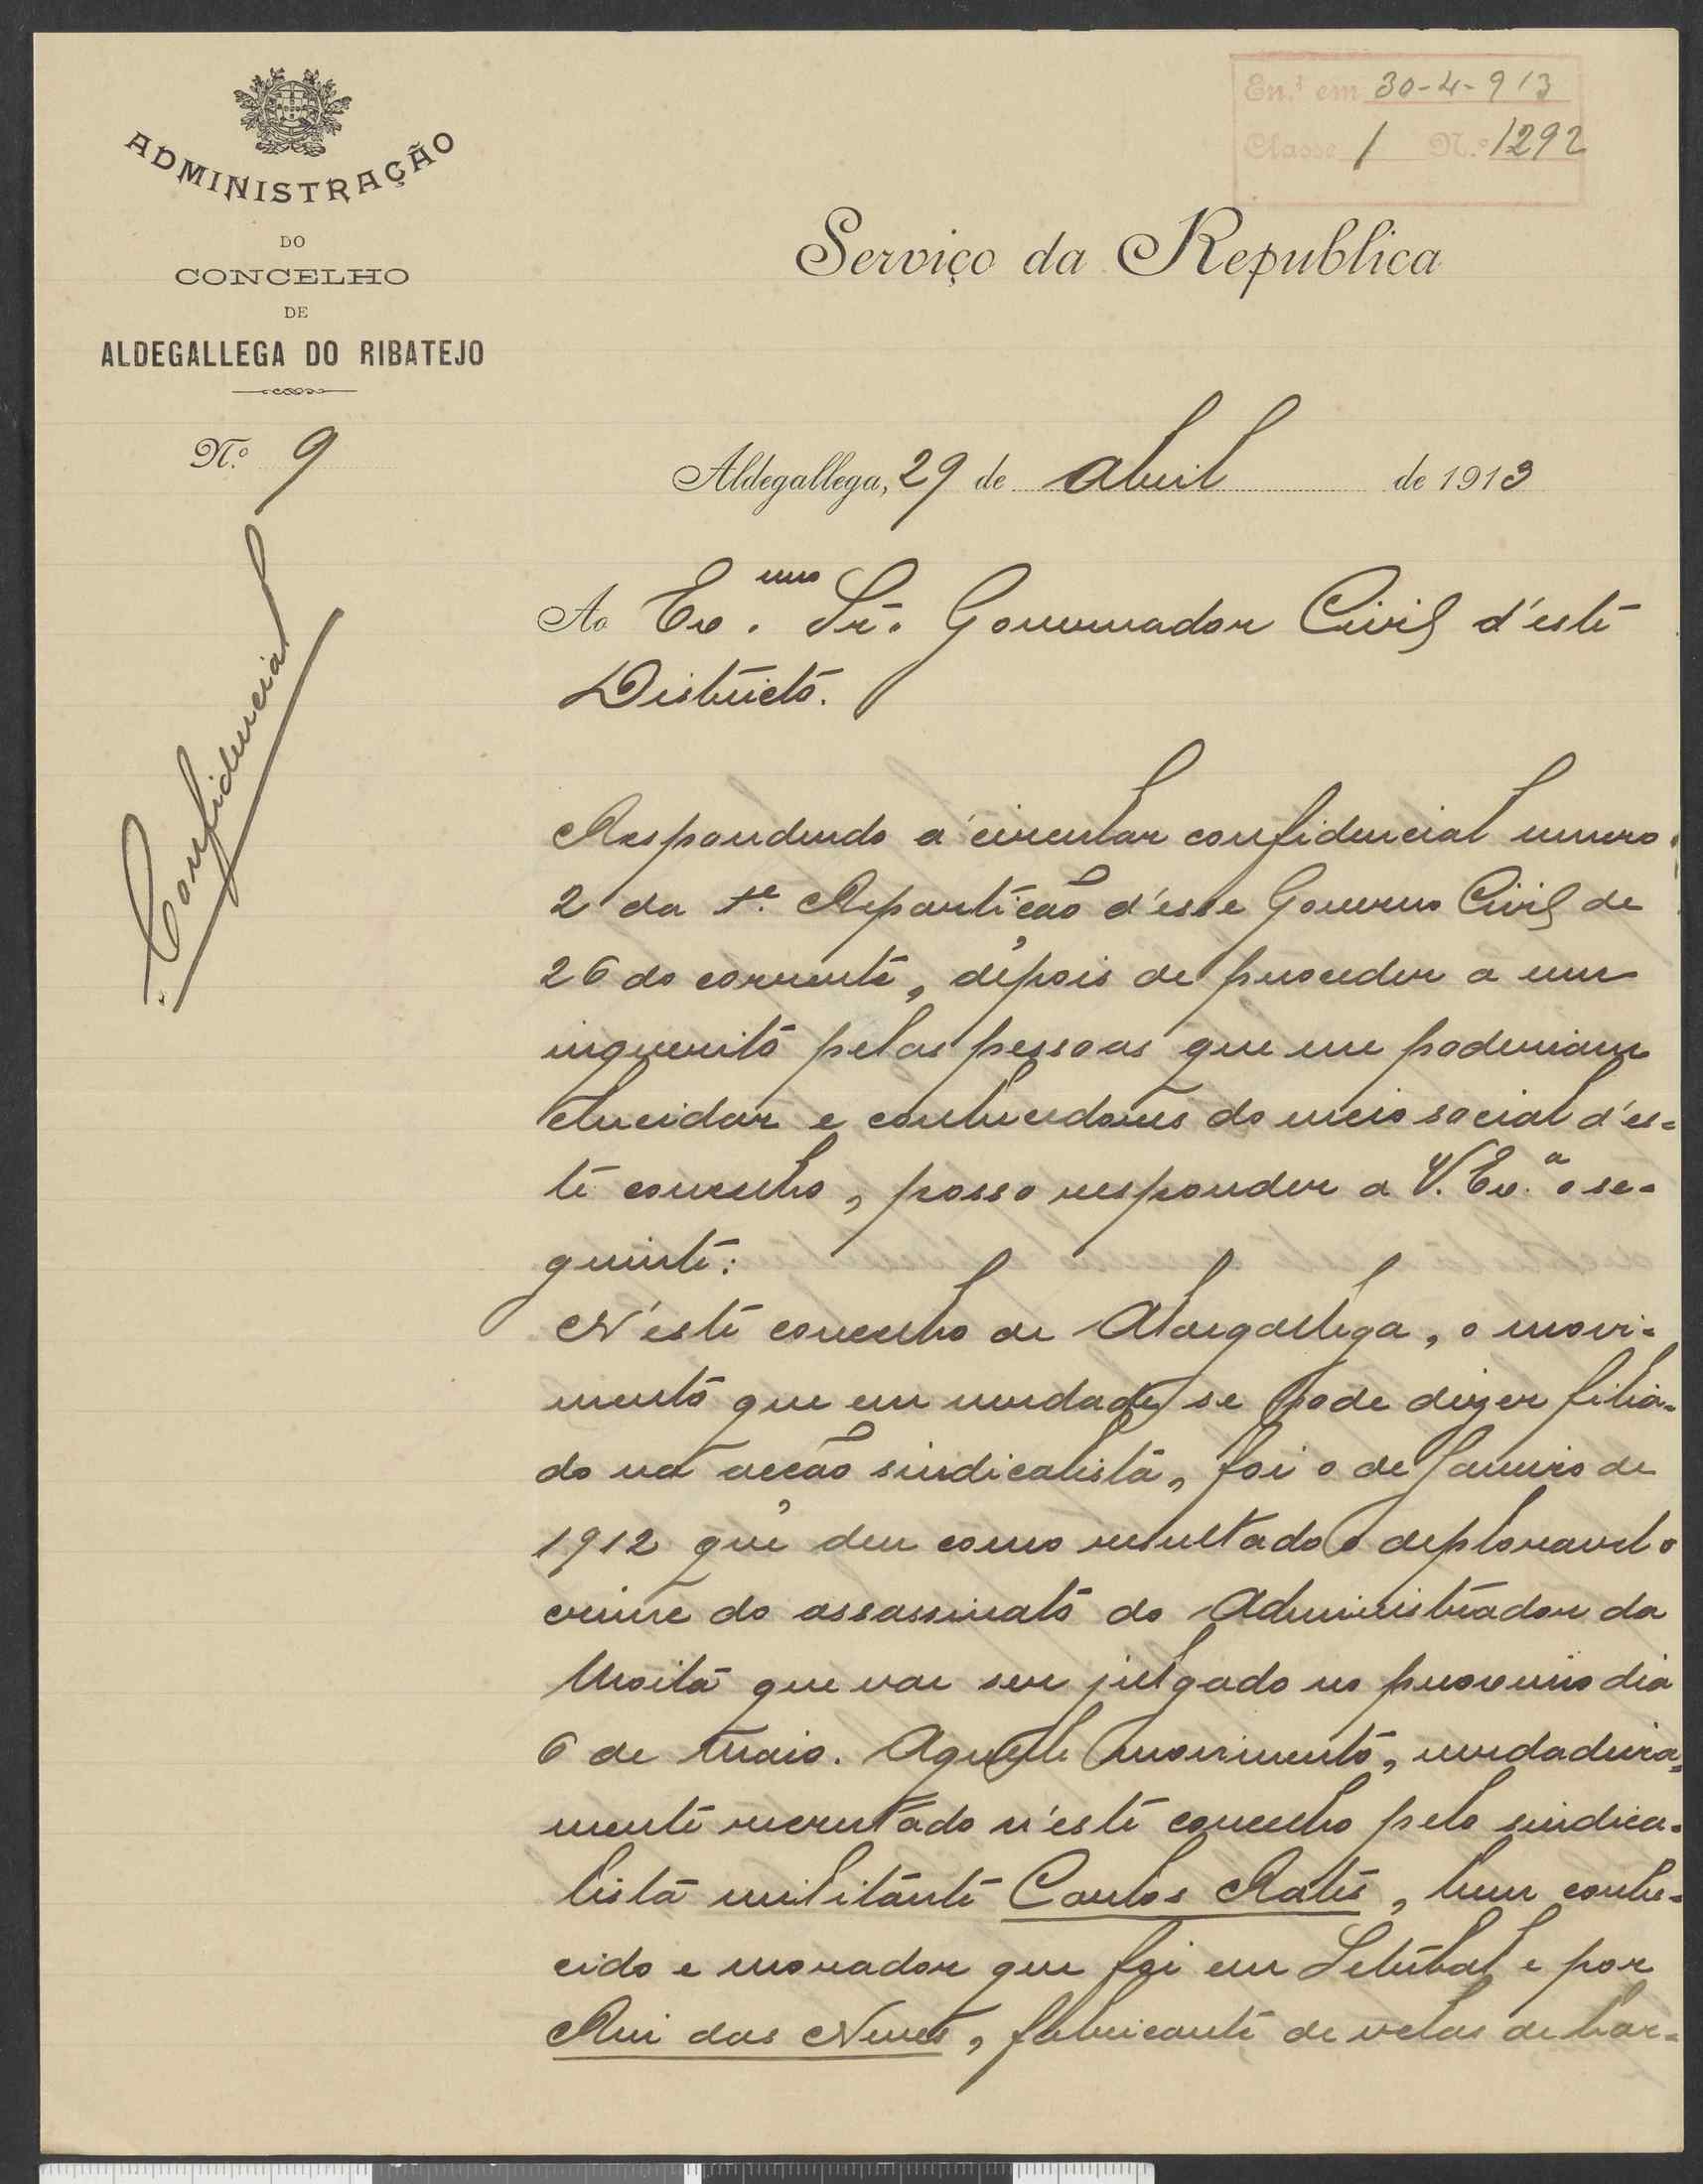 En.ª em 30-4-913
Classe 1 N.º 1292
ADMINISTRAÇÃO
DO
CONCELHO
DE
ALDEGALLEGA DO RIBATEJO
N.º 9
Confidencial
Serviço da Republica
Aldegallega, 29 de Abril de 1913
Ao Ex.mo Sr. Governador Civil d'este
Districto.
Respondendo á circular confidencial numero
2 da 1.ª Repartição d'esse Governo Civil de
26 do corrente, depois de proceder a um
inquerito pelas pessoas que me poderiam
elucidar e conhecedores do meio social d'es-
te concelho, posso responder a V. Ex.ª o se-
guinte:
N'este concelho de Aldegallega, o movi-
mento que em verdade se pode dizer filia-
do na acção sindicalista, foi o de Janeiro de
1912 que deu como resultado o deploravel
crime do assassinato do Administrador da
Moita que vae ser julgado no proximo dia
6 de Maio. Aquelle movimento, verdadeira-
mente recrutado n'este concelho pelo sindica-
lista militante Carlos Rates, bem conhe-
cido e morador que foi em Setubal e por
Rui das Neves, fabricante de velas de bar-